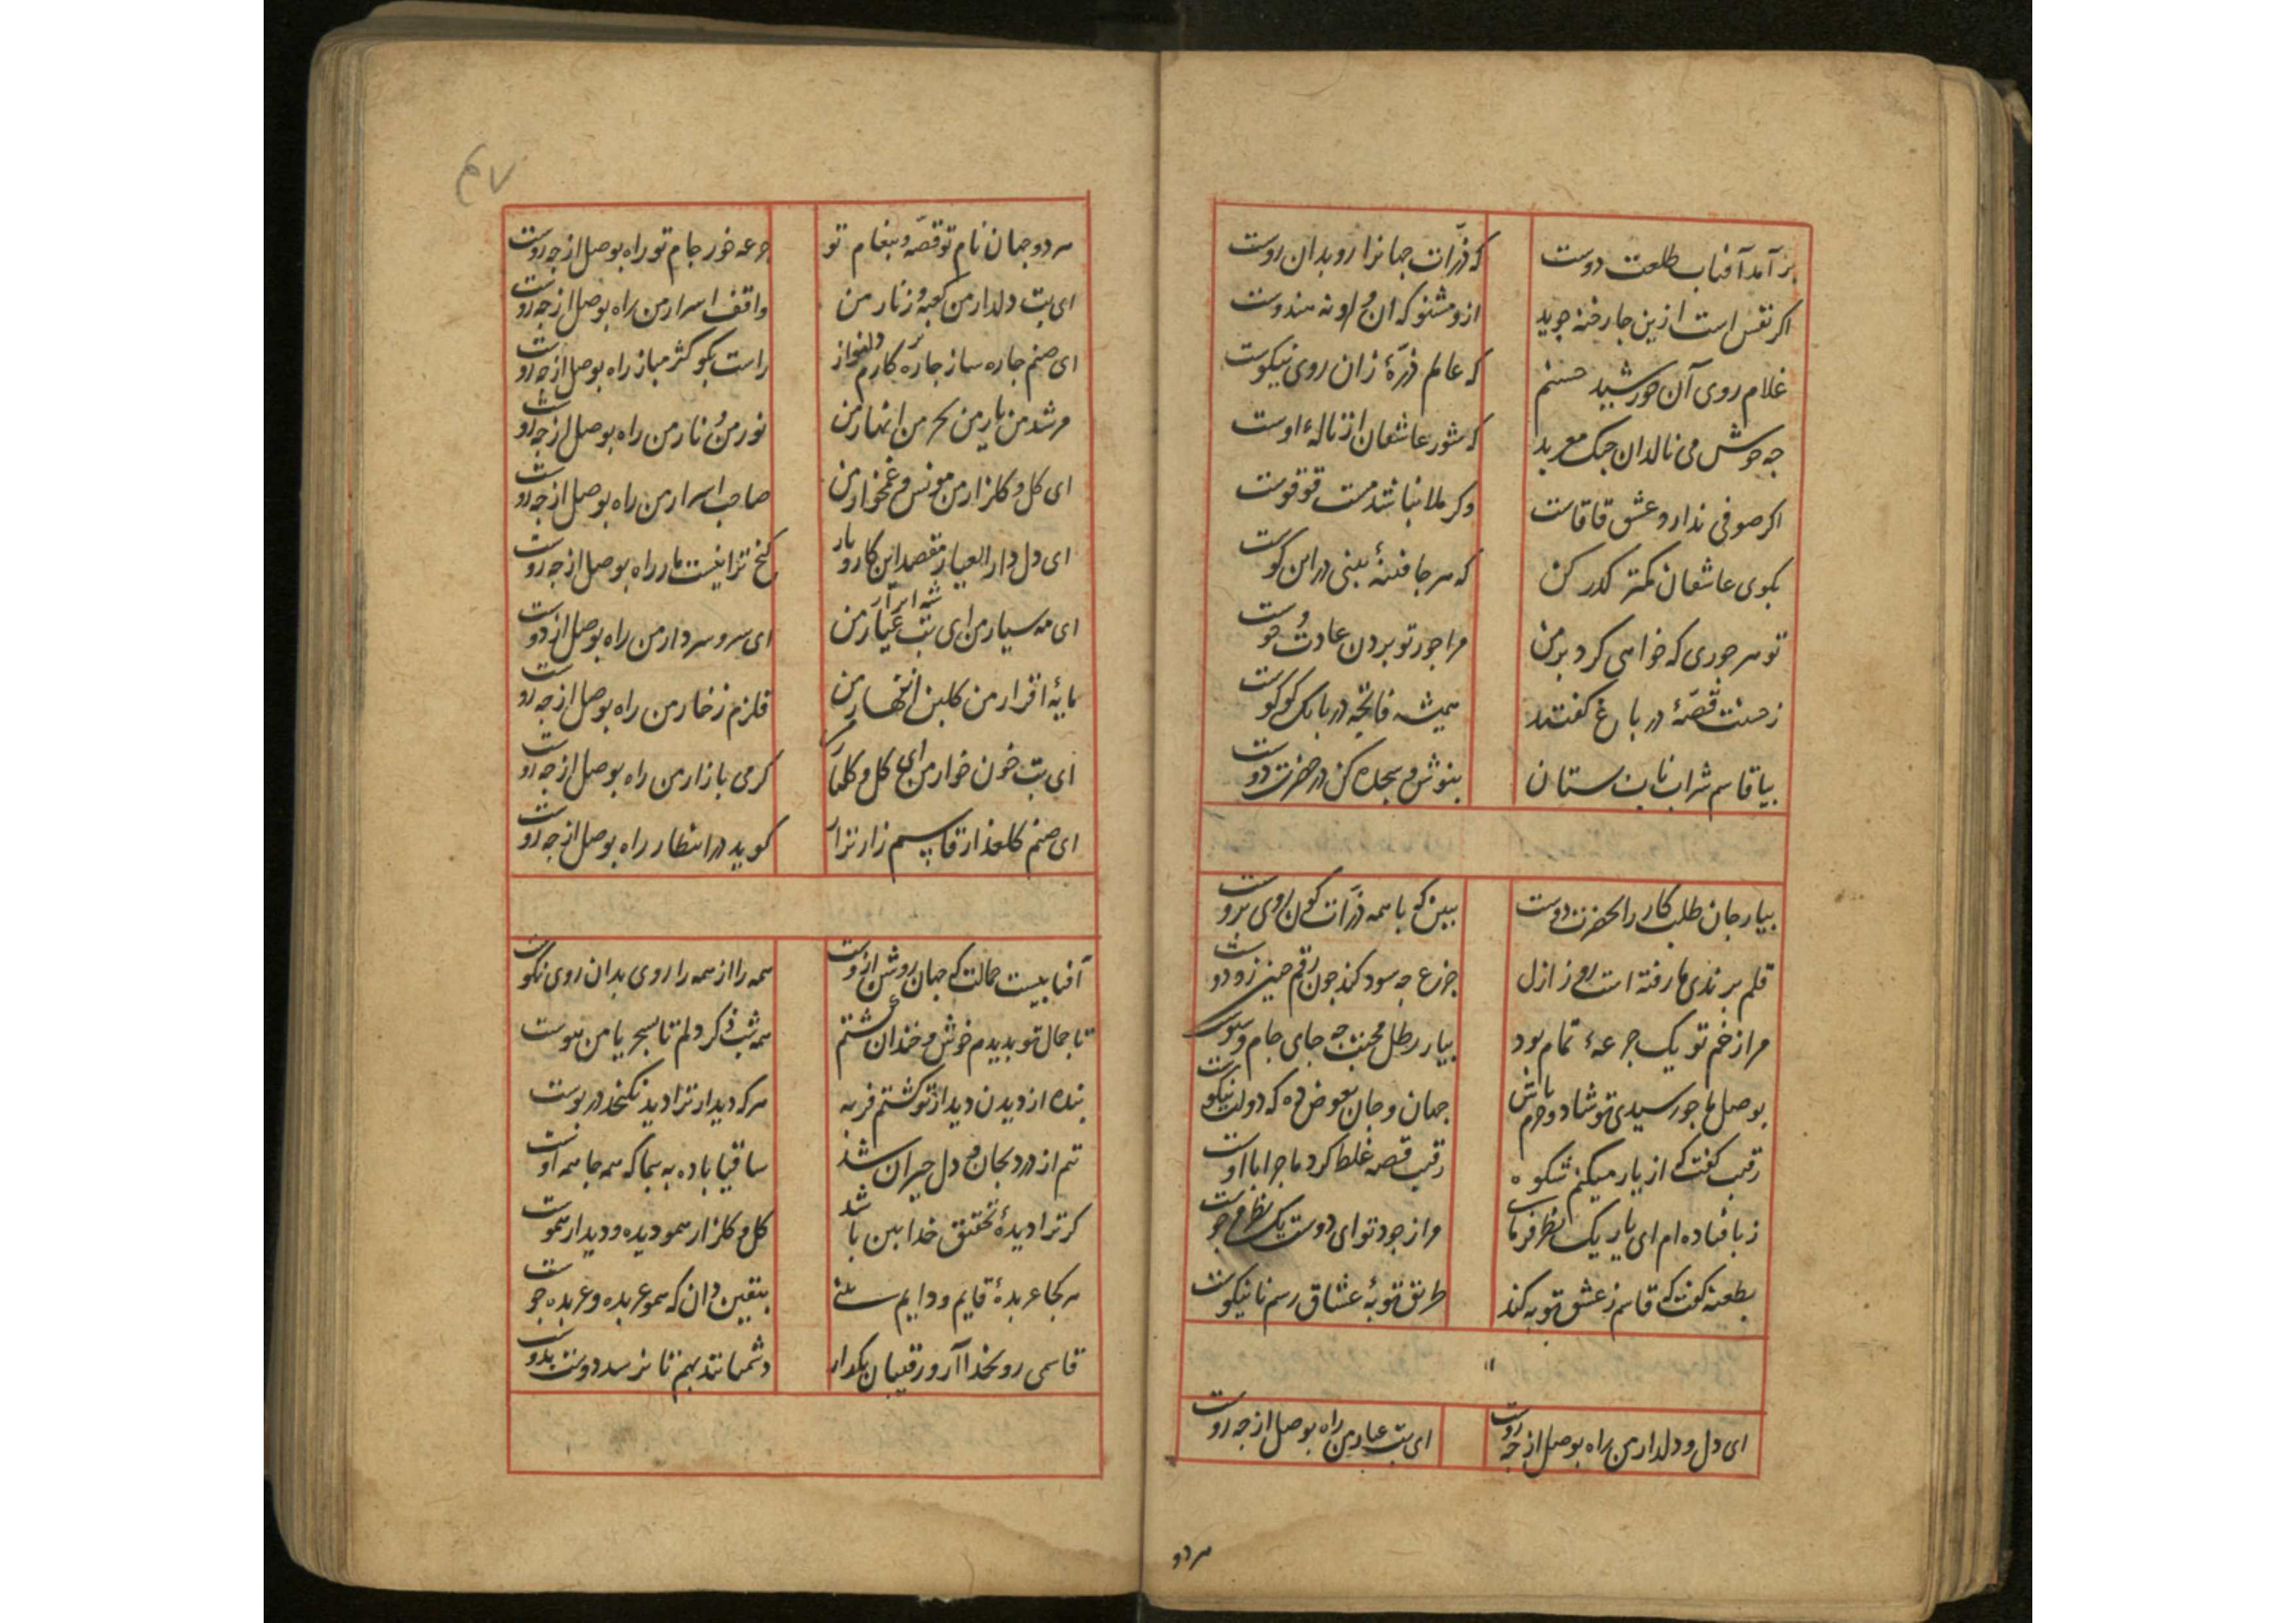 برآمد آفتاب طلعت دوست که ذرّات جهانرا رو بدان روست
اکر نفس است ازین جا رخنه جوید ازو مشنو که ان او نه هندوست
غلام روی آن خورشید حسنم که عالم ذرّهٔ زان روی نیکوست
چه خوش می نالد ان چنک معربد که شور عاشقان از نالهٔ اوست
اکر صوفی ندارد عشق قاقاست وکر ملا نباشد مست قوقوست
بکوی عاشقان کمتر کذر کن که هرجا فتنهٔ بینی دران کوست
تو هر جوری که خواهی کرد بر من مرا جور تو بردن عادت و خوست
ز حسنت قصّهٔ در باغ کفتند همیشه فاخته در بانک کوکوست
بیا قاسم شراب ناب بستان بنوش و سجده کن در حضرت دوست
بیار جان طلبکار را بحضرت دوست ببین که با همه ذرّات کون روی بروست
قلم برندی ما رفته است روز ازل جزع چه سود کند چون رقم چنین زود
مرا ز خم تو یک جرعهٔ تمام بود بیار رطل محبت چه جای جام و سبوست
بوصل ما چو رسیدی تو شاد و خرم باش جهان و جان بعوض ده که دولت نیکوست
رقیب کفت که از یار میکنم شکوه رقیب قصه غلط کرد ماجرا با اوست
ز پا فتاده ام ای یار یک نظر فرما مرا ز جود تو ای دوست یک نظر مرجوست
بطعنه کفت که قاسم ز عشق توبه کند طریق توبهٔ عشاق رسم نانیکوست
ای دل و دلدار من راه بوصل از چه روست ای بت عیار من راه بوصل از چه روست
هر دو
۴۷
هر دو جهان نام تو قصّه و پیغام تو جرعه خور جام تو راه بوصل از چه روست
ای بت دلدار من کعبه و زنار من واقف اسرار من راه بوصل از چه روست
ای صنم چاره ساز چاره کارم دلنواز راست بکو کژ مباز راه بوصل از چه روست
مرشد من یار من بحر من انهار من نور من و نار من راه بوصل از چه روست
ای کل و کلزار من مونس و غمخوار من صاحب اسرار من راه بوصل از چه روست
ای دل دار العیار مقصد این کار و بار کنج ترا نیست مار راه بوصل از چه روست
ای مه سیار من ای بت عیار من شه ابرار ای سر و سردار من راه بوصل از دوست
مایهٔ اقرار من کلبن ازهار من قلزم زخار من راه بوصل از چه روست
ای بت خون خوار من ای کل و کلنار کرمی بازار من راه بوصل از چه روست
ای صنم کلعذار قاسم زار نزار کوید در انتظار راه بوصل از چه روست
آفتابیست جمالت که جهان روشن ازوست همه را از همه رو روی بدان روی نکوست
تا جمال تو بدیدم خوش و خندان کشتم همه شب ذکر دلم تا بسحر یا من هوست
بنده از دیدن دیدار تو کشتم فربه هرکه دیدار ترا دید نکنجد در پوست
تنم از درد بجان و دل حیران شد ساقیا باده بپیما که همه جا همه اوست
کر ترا دیدهٔ تحقیق خدا بین باشد کل و کلزار همو دیده و دیدار هموست
هر کجا عربدهٔ قایم و دایم بینی بیقین دان که همو عربده و عربده جوست
قاسمی رو بخدا آر و رقیبان بکذار دشمنانند بهم تا نرسد دوست بدوست